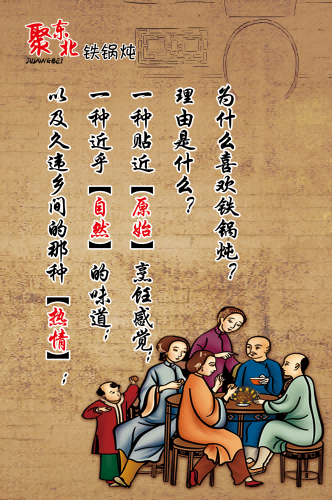 聚东北
JUDONGBEI
铁锅炖
为什么喜欢铁锅炖？
理由是什么？
一种贴近【原始】烹饪感觉；
一种近乎【自然】的味道；
以及久违乡间的那种【热情】；